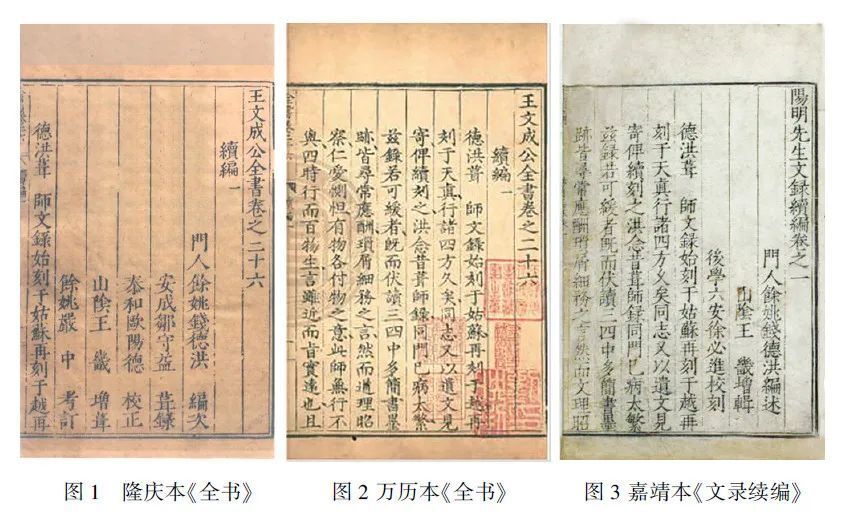 王文成公全書卷之二十六
續編一
門人餘姚錢德洪 編次
安成鄒守益 葺錄
泰和歐陽德 校正
山陰王 畿 增葺
餘姚嚴 中 考訂
德洪葺 師文錄始刻于姑蘇再刻于越再
图 1 隆庆本《全书》
王文成公全書卷之二十六
續編一
德洪葺 師文錄始刻于姑蘇再刻于越再
刻于天真行諸四方久矣同志又以遺文見
寄俾續刻之洪念昔葺師錄同門已病太繁
茲錄若可緩者既而伏讀三四中多簡書墨
跡皆尋常應酬瑣屑細務之言然而道理昭
察仁愛惻怛有物各付物之意此師無行不
與四時行而百物生言雖近而旨實遠也且
图 2 万历本《全书》
陽明先生文錄續編卷之一
門人餘姚錢德洪編述
山陰王 畿增輯
後學六安徐必進校刻
德洪葺 師文錄始刻于姑蘇再刻于越再
刻于天真行諸四方久矣同志又以遺文見
寄俾續刻之洪念昔葺師錄同門已病太繁
茲錄若可緩者既而伏讀三四中多簡書墨
跡皆尋常應酬瑣屑細務之言然而文理昭
图 3 嘉靖本《文录续编》